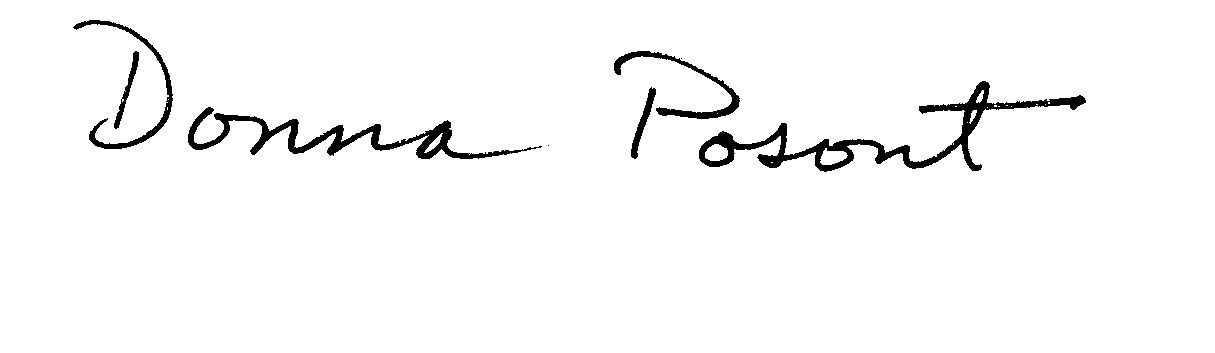 Donna Posont